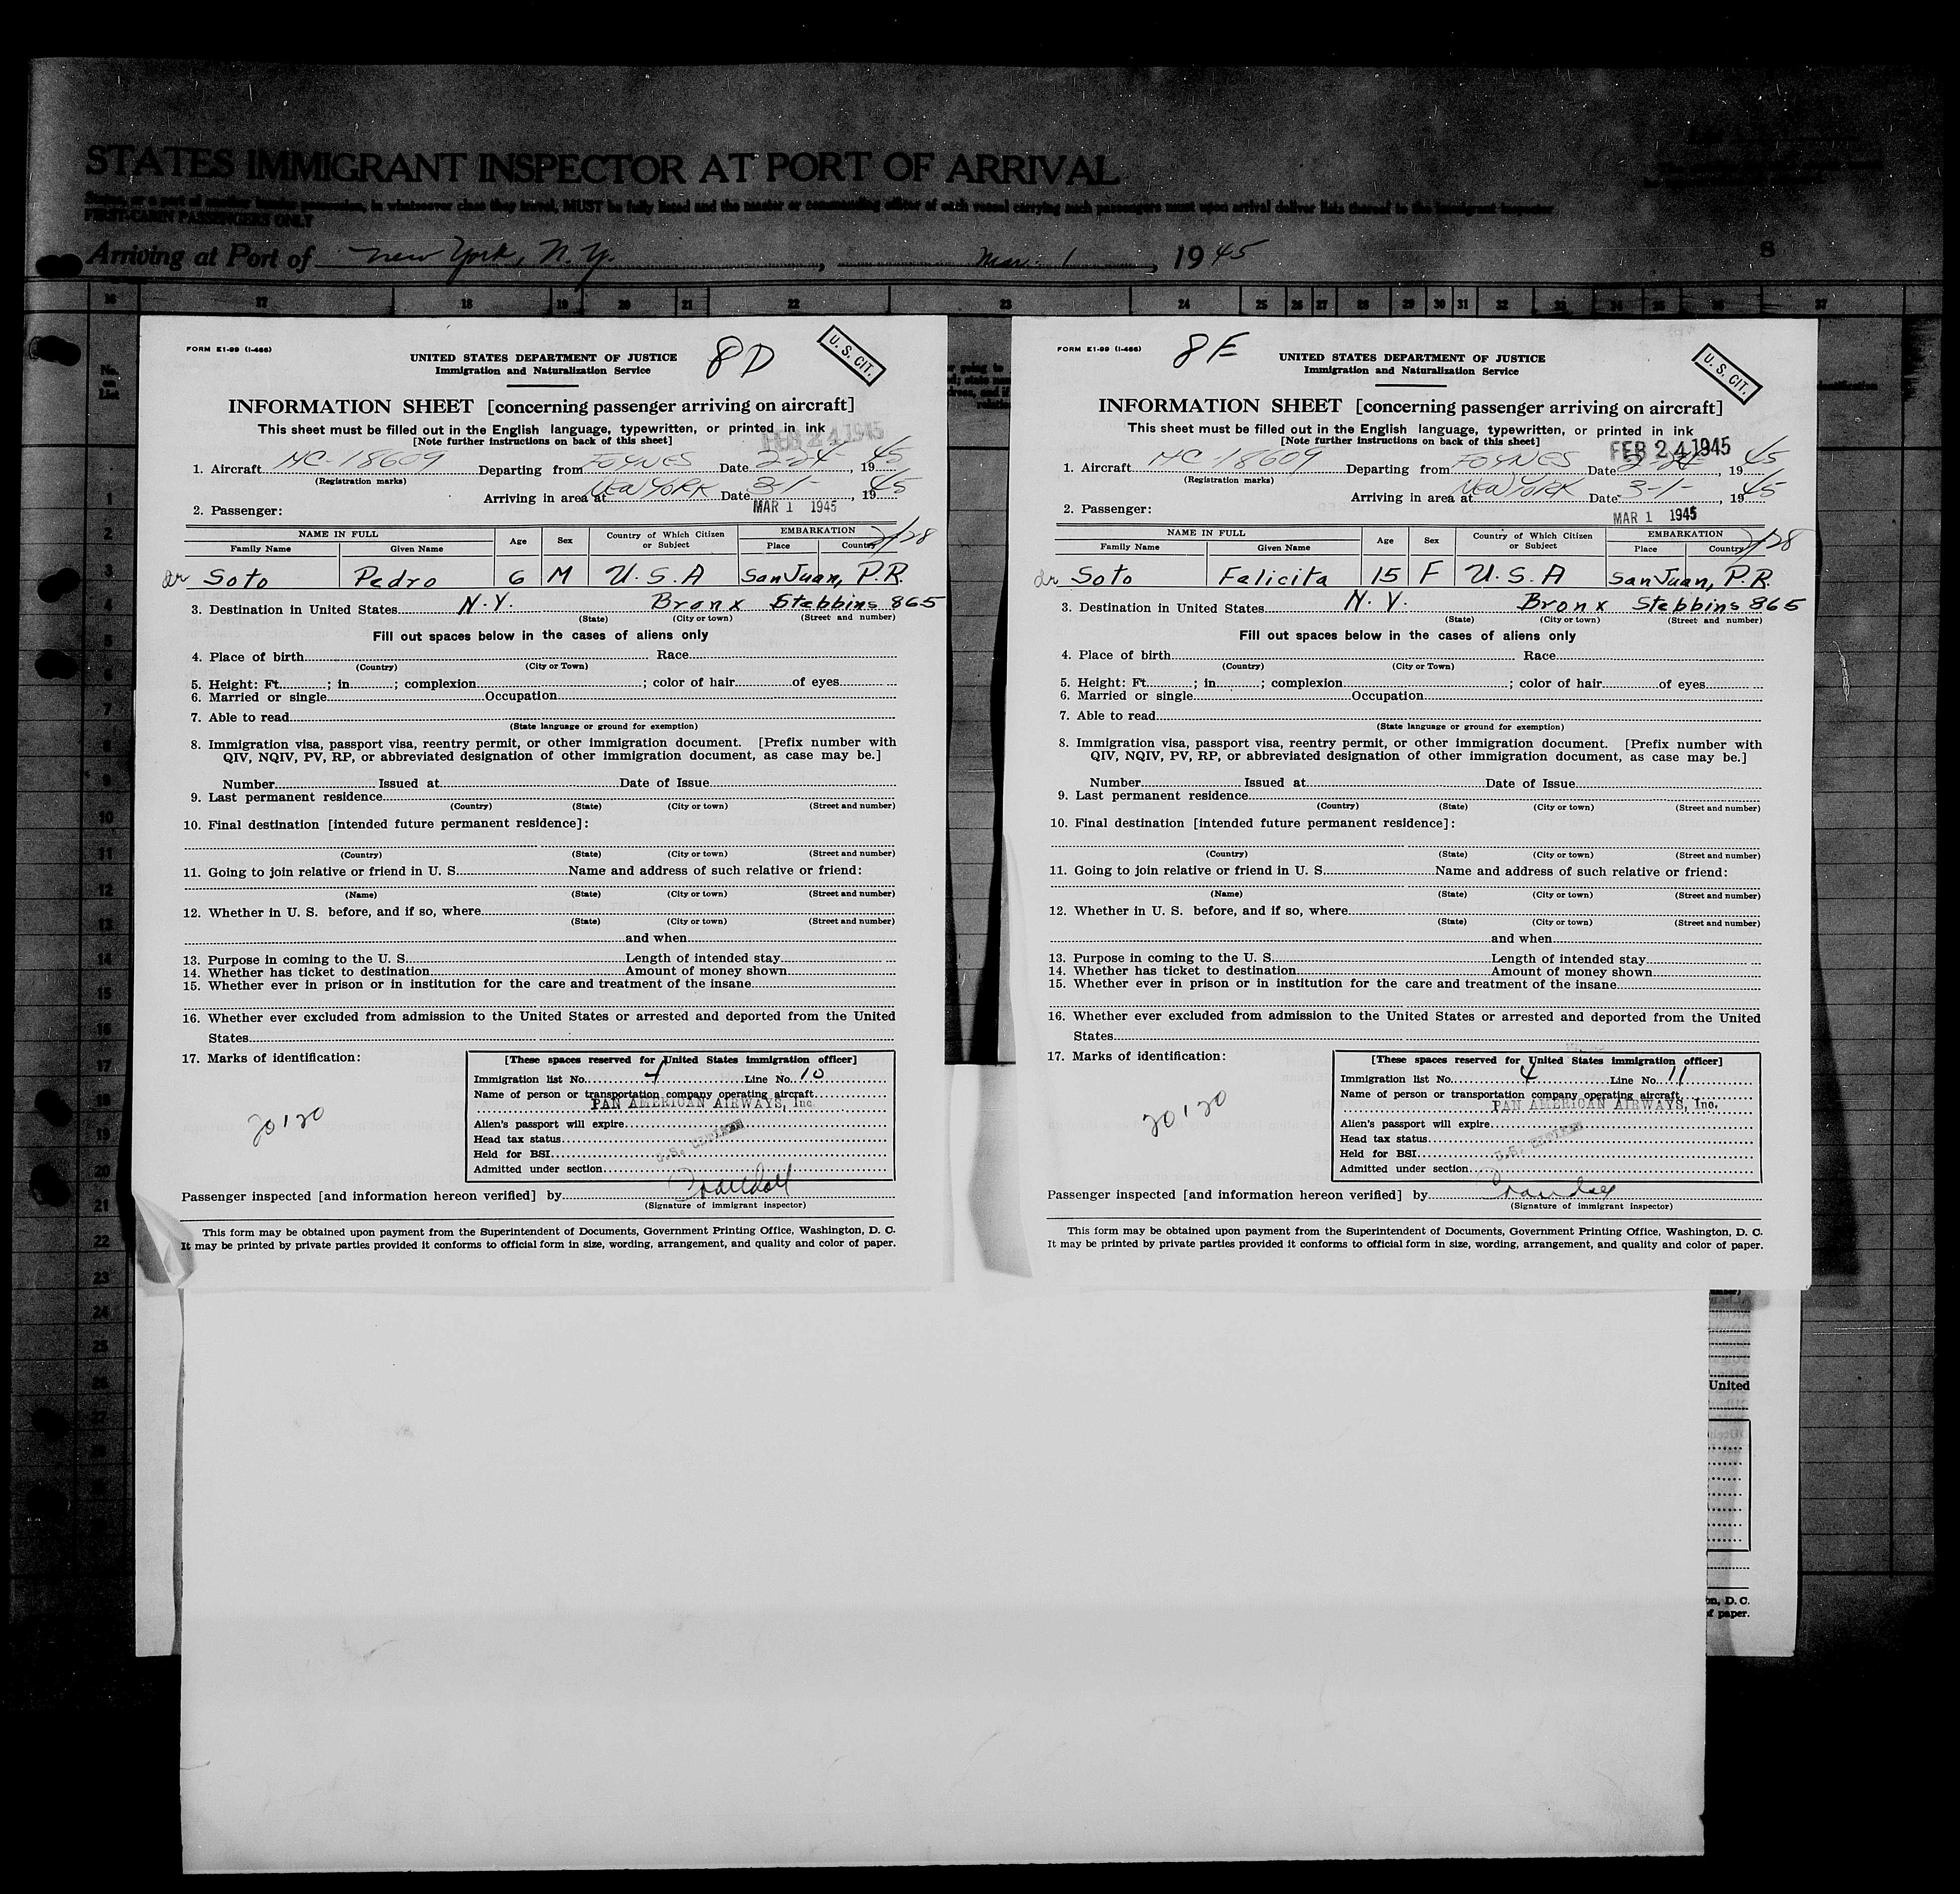 STATES IMMIGRANT INSPECTOR AT PORT OF ARRIVAL
States, or a part of another insular possession, in whatsoever class they travel, MUST be fully listed and the master or commanding officer of each vessel carrying such passengers must upon arrival deliver lists thereof to the immigrant inspector
FIRST-CABIN PASSENGERS ONLY
Arriving at Port of New York, N.Y., Mar. 1, 1945
8
16 17 18 19 20 21 22 23 24 25 26 27 28 29 30 31 32 33 34 35 36 37
No. on List
FORM E1-99 (I-466)
8D
U. S. CIT.
UNITED STATES DEPARTMENT OF JUSTICE
Immigration and Naturalization Service
INFORMATION SHEET [concerning passenger arriving on aircraft]
This sheet must be filled out in the English language, typewritten, or printed in ink
[Note further instructions on back of this sheet]
FEB 24 1945
1. Aircraft NC-18609 Departing from FOYNES Date 2-24-, 1945
(Registration marks)
Arriving in area at NEW YORK Date 3-1-, 1945
MAR 1 1945
2. Passenger:
NAME IN FULL Age Sex Country of Which Citizen or Subject EMBARKATION
Family Name Given Name Place Country
2/28
Soto Pedro 6 M U.S.A San Juan, P.R.
3. Destination in United States N.Y. Bronx Stebbins 865
(State) (City or town) (Street and number)
Fill out spaces below in the cases of aliens only
4. Place of birth Race
(Country) (City or Town)
5. Height: Ft. ; in. ; complexion ; color of hair of eyes
6. Married or single Occupation
7. Able to read
(State language or ground for exemption)
8. Immigration visa, passport visa, reentry permit, or other immigration document. [Prefix number with
QIV, NQIV, PV, RP, or abbreviated designation of other immigration document, as case may be.]
Number Issued at Date of Issue
9. Last permanent residence
(Country) (State) (City or town) (Street and number)
10. Final destination [intended future permanent residece]:
(Country) (State) (City or town) (Street and number)
11. Going to join relative or friend in U. S. Name and address of such relative or friend:
(Name) (State) (City or town) (Street and number)
12. Whether in U. S. before, and if so, where
(State) (City or town) (Street and number)
and when
13. Purpose in coming to the U. S. Length of intended stay
14. Whether has ticket to destination Amount of money shown
15. Whether ever in prison or in institution for the care and treatment of the insane
16. Whether ever excluded from admission to the United States or arrested and deported from the United
States
17. Marks of identification:
20120
[These spaces reserved for United States immigration officer]
Immigration list No. 4 Line No. 10
Name of person or transportation company operating aircraft
PAN AMERICAN AIRWAYS, Inc.
Alien's passport will expire
Head tax status
U.S. CITIZEN
Held for BSI
Admitted under section
Passenger inspected [and information hereon verified] by Crandall
(Signature of immigrant inspector)
This form may be obtained upon payment from the Superintendent of Documents, Government Printing Office, Washington, D. C.
It may be printed by private parties provided it conforms to official form in size, wording, arrangement, and quality and color of paper.
FORM E1-99 (I-466)
8E
U. S. CIT.
UNITED STATES DEPARTMENT OF JUSTICE
Immigration and Naturalization Service
INFORMATION SHEET [concerning passenger arriving on aircraft]
This sheet must be filled out in the English language, typewritten, or printed in ink
[Note further instructions on back of this sheet]
FEB 24 1945
1. Aircraft NC-18609 Departing from FOYNES Date 2-24, 1945
(Registration marks)
Arriving in area at NEW YORK Date 3-1-, 1945
MAR 1 1945
2. Passenger:
NAME IN FULL Age Sex Country of Which Citizen or Subject EMBARKATION
Family Name Given Name Place Country
2/28
Soto Felicita 15 F U.S.A San Juan, P.R.
3. Destination in United States N.Y. Bronx Stebbins 865
(State) (City or town) (Street and number)
Fill out spaces below in the cases of aliens only
4. Place of birth Race
(Country) (City or Town)
5. Height: Ft. ; in. ; complexion ; color of hair of eyes
6. Married or single Occupation
7. Able to read
(State language or ground for exemption)
8. Immigration visa, passport visa, reentry permit, or other immigration document. [Prefix number with
QIV, NQIV, PV, RP, or abbreviated designation of other immigration document, as case may be.]
Number Issued at Date of Issue
9. Last permanent residence
(Country) (State) (City or town) (Street and number)
10. Final destination [intended future permanent residence]:
(Country) (State) (City or town) (Street and number)
11. Going to join relative or friend in U. S. Name and address of such relative or friend:
(Name) (State) (City or town) (Street and number)
12. Whether in U. S. before, and if so, where
(State) (City or town) (Street and number)
and when
13. Purpose in coming to the U. S. Length of intended stay
14. Whether has ticket to destination Amount of money shown
15. Whether ever in prison or in institution for the care and treatment of the insane
16. Whether ever excluded from admission to the United States or arrested and deported from the United
States
17. Marks of identification:
20120
[These spaces reserved for United States immigration officer]
Immigration list No. 4 Line No. 11
Name of person or transportation company operating aircraft
PAN AMERICAN AIRWAYS, Inc.
Alien's passport will expire
Head tax status
U.S. CITIZEN
Held for BSI
Admitted under section
Passenger inspected [and information hereon verified] by Crandall
(Signature of immigrant inspector)
This form may be obtained upon payment from the Superintendent of Documents, Government Printing Office, Washington, D. C.
It may be printed by private parties provided it conforms to official form in size, wording, arrangement, and quality and color of paper.
United
on, D. C.
of paper.